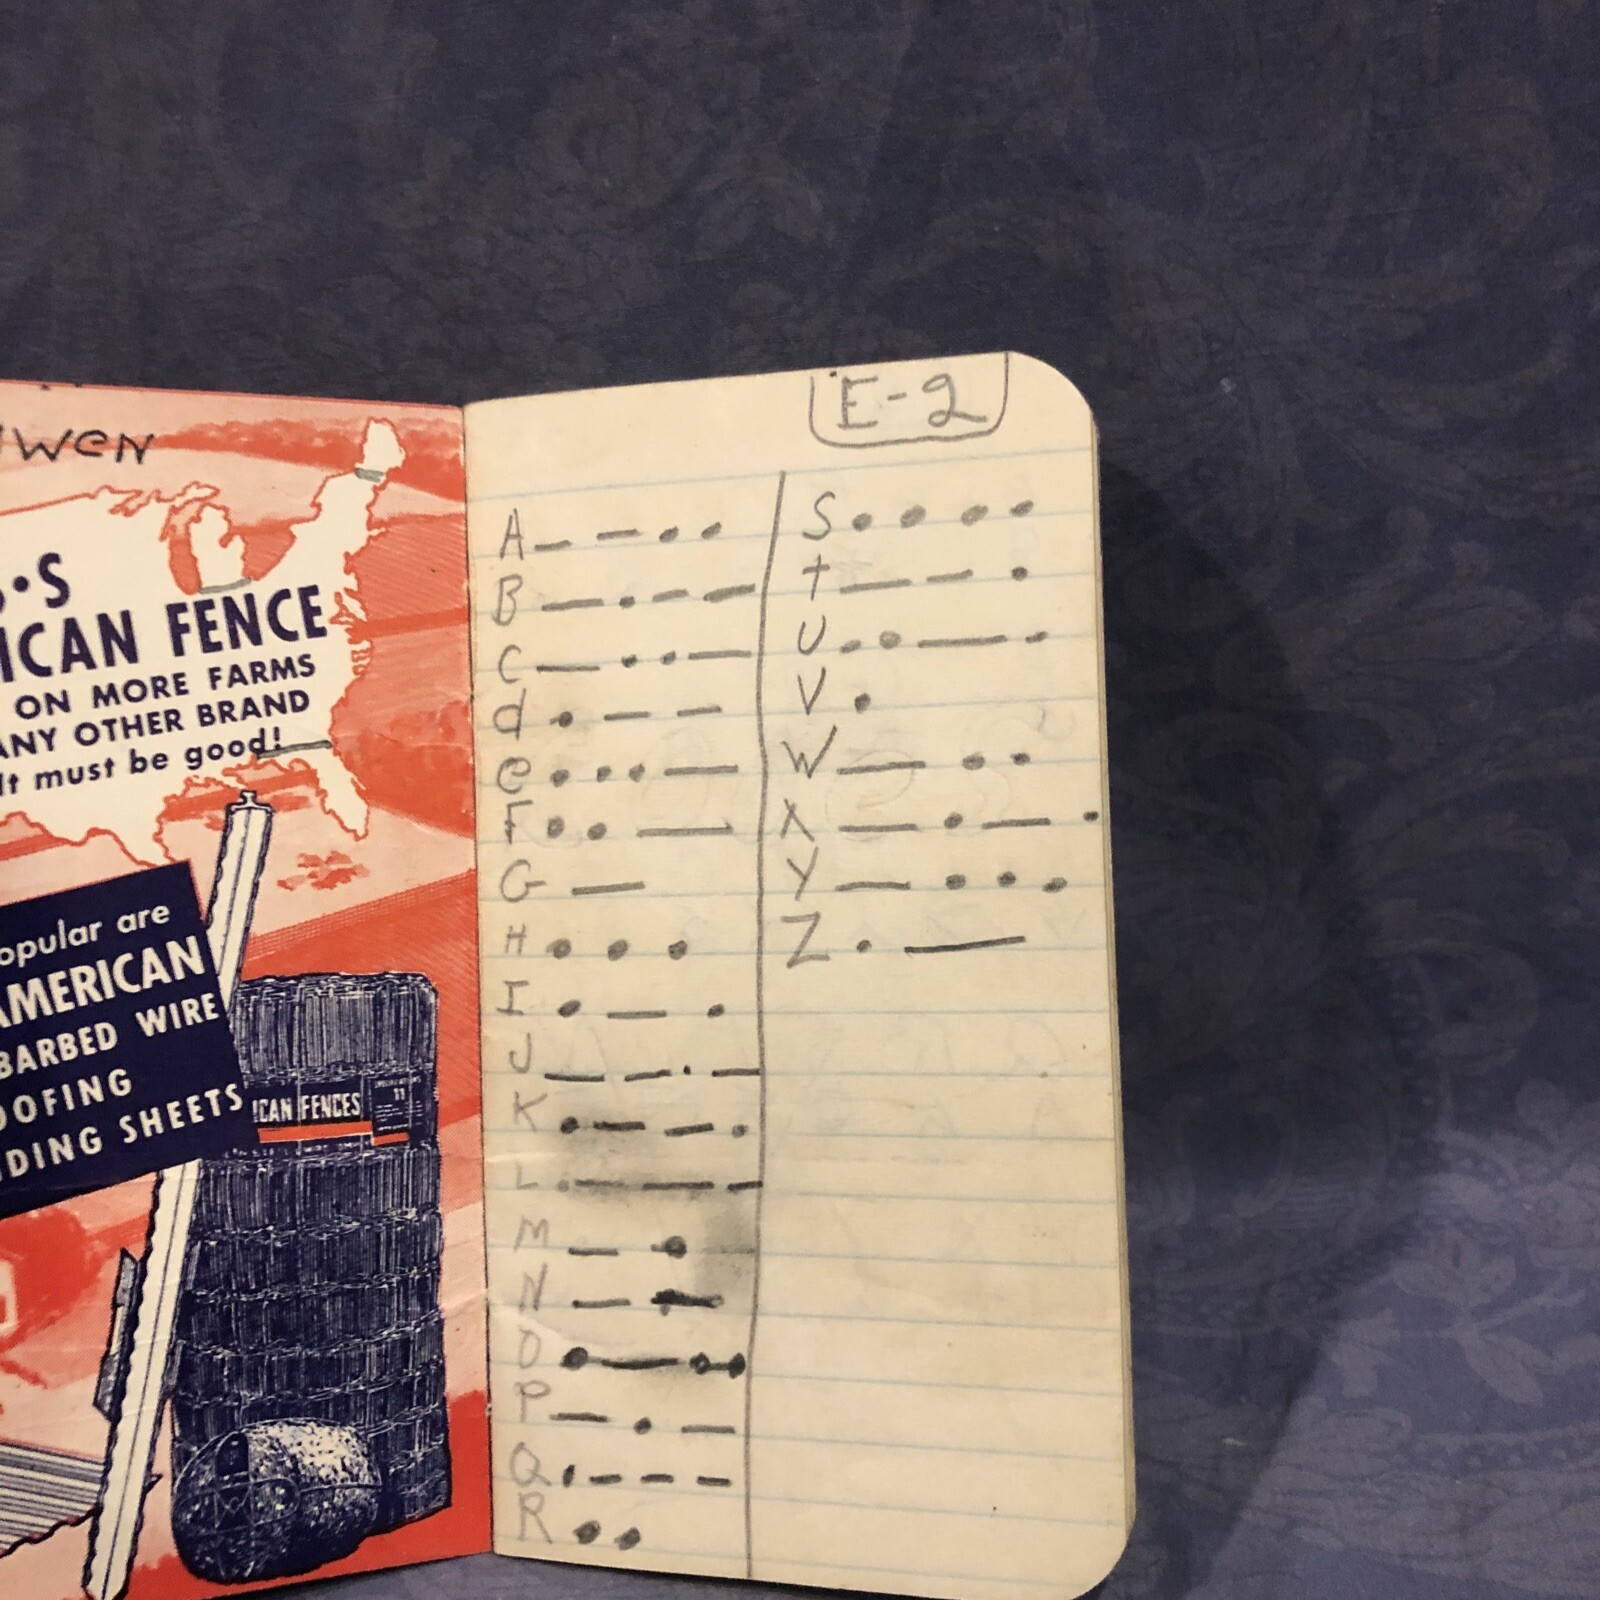 WEN
S•S
ICAN FENCE
ON MORE FARMS
ANY OTHER BRAND
It must be good!
opular are
AMERICAN
BARBED WIRE
OOFING
DING SHEETS
ICAN FENCES
11
E-2
A — — • •
B — • — —
C — • • —
d • — —
e • • • —
F • • —
G —
H • • •
I • — •
J — — • —
K • — — •
L • — — —
M — •
N — —
O • — • •
P — • —
Q • — — —
R • •
S • • • •
t — — •
U • • — •
V •
W — • •
X — • — •
Y — • • •
Z • —